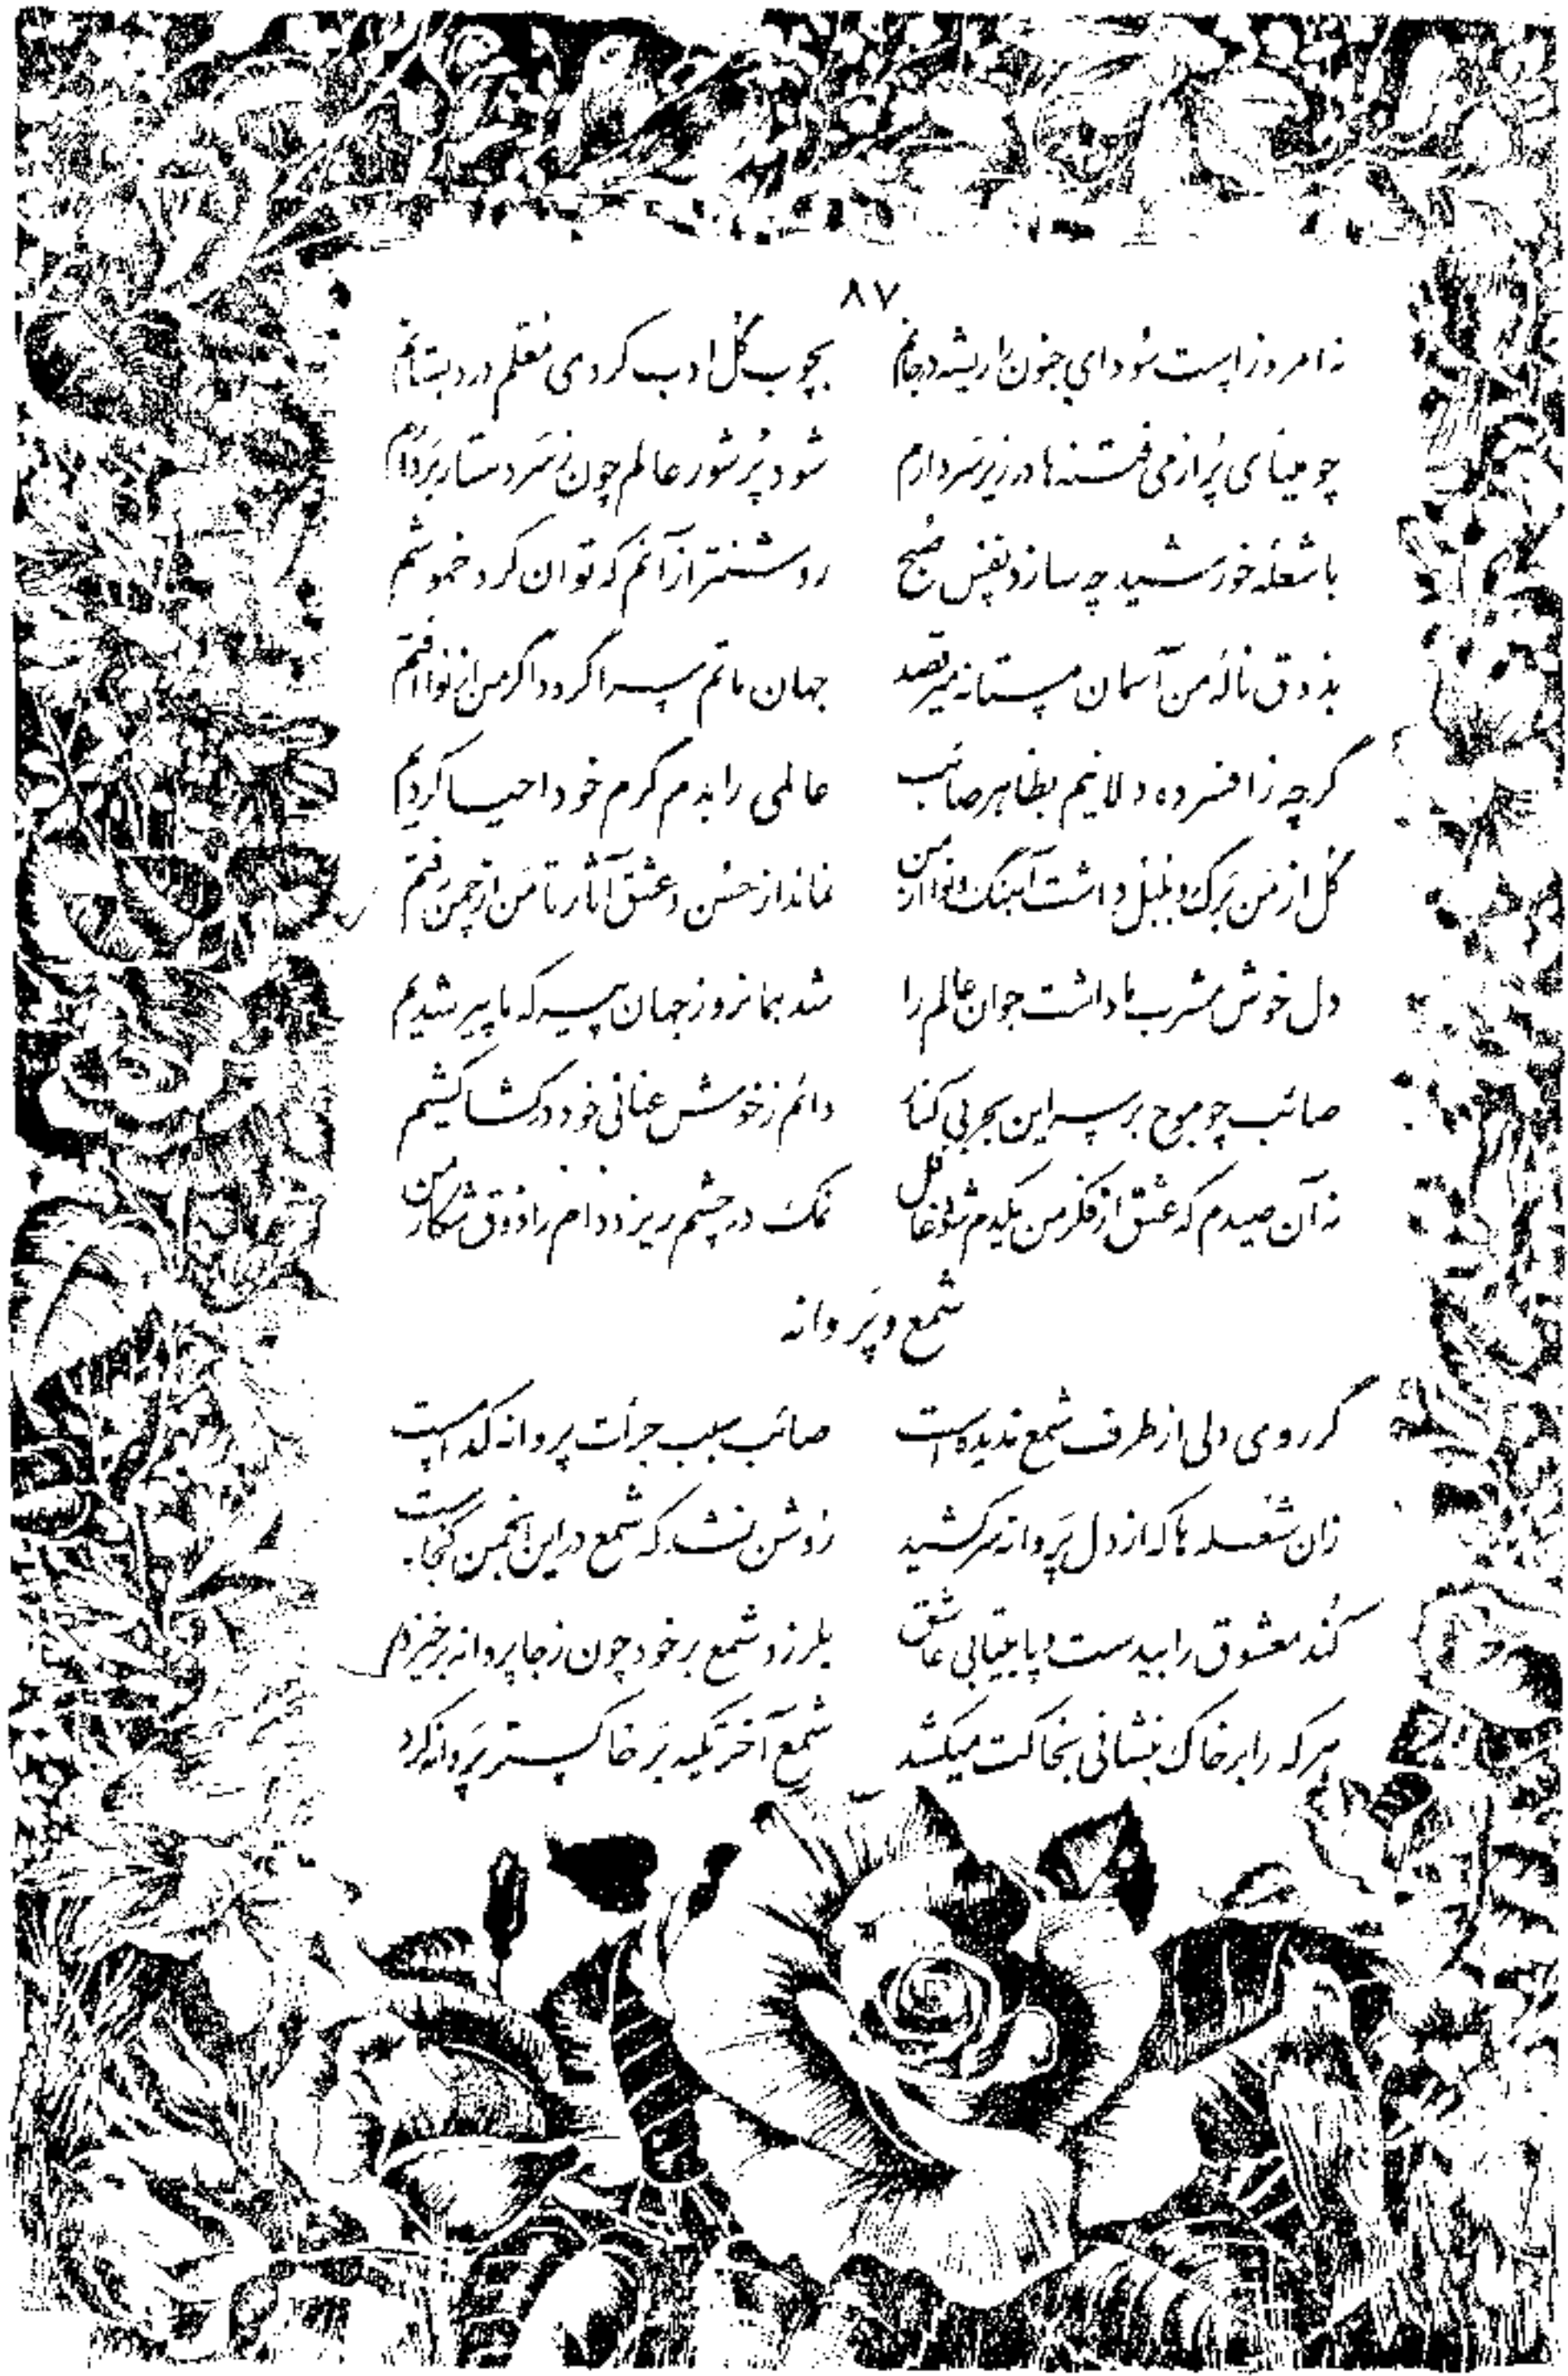 ۸۷
نه امروز است سودای جنون را ریشه در جانم بچوب گل ادب کردی معلم در دبستانم
چو مینای پر از می فتنه‌ها در زیر سر دارم شود پر شور عالم چون ز سر دستار بردارم
با شعلهٔ خورشید چه سازد نفس صبح روشنتر از آنم که توان کرد خموشم
بذوق نالهٔ من آسمان مستانه میرقصد جهان ماتم سرا گردد اگر من از نوا افتم
گرچه ز افسرده دلانیم بظاهر صائب عالمی را بدم گرم خود احیا کردیم
گل از من برگ و بلبل داشت آهنگ و نوا از من نماند از حسن و عشق آثار تا من از چمن رفتم
دل خوش مشرب ما داشت جوان عالم را شد همانروز جهان پیر که ما پیر شدیم
صائب چو موج بر سر این بحر بی کنار دائم ز خوش عنانی خود در کشاکشیم
نه آن صیدم که عشق از فکر من یکدم شود غافل نمک در چشم ریزد دام را ذوق شکار من
شمع و پروانه
گر روی دلی از طرف شمع ندیده است صائب سبب جرأت پروانه کدام است
زان شعله‌ها که از دل پروانه سر کشید روشن نشد که شمع در این انجمن کجاست
کند معشوق را بیدست و پا بیتابی عاشق بلرزد شمع بر خود چون ز جا پروانه برخیزد
هر که را بر خاک بنشانی بخاکت میکشد شمع آخر تکیه بر خاکستر پروانه کرد